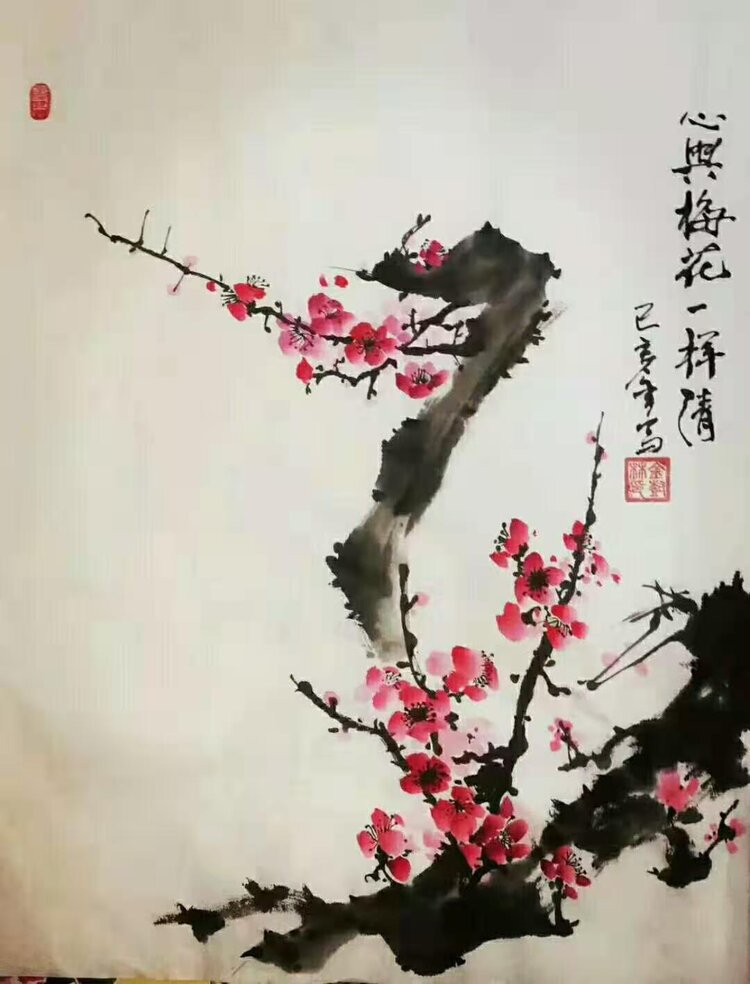 心與梅花一样清
己亥年写